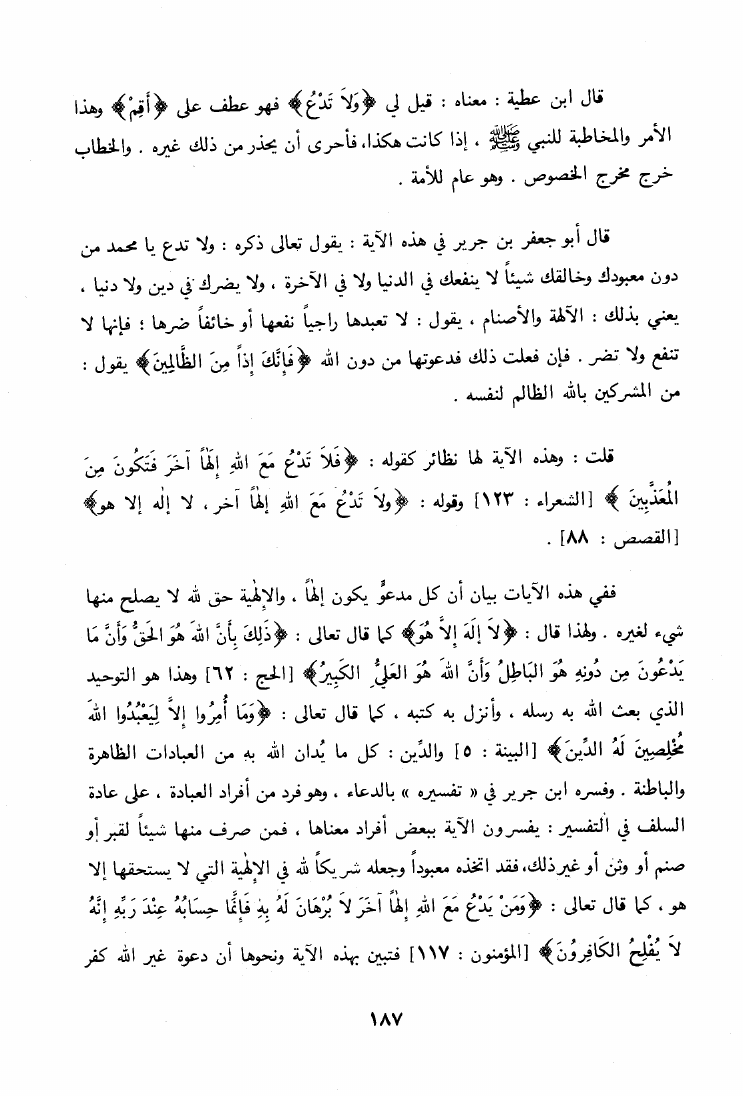 قال ابن عطية : معناه : قيل لي ﴿وَلاَ تَدْعُ﴾ فهو عطف على ﴿أَقِمْ﴾ وهذا
الأمر والمخاطبة للنبي ﷺ ، إذا كانت هكذا، فأحرى أن يحذر من ذلك غيره . والخطاب
خرج مخرج الخصوص . وهو عام للأمة .
قال أبو جعفر بن جرير في هذه الآية : يقول تعالى ذكره : ولا تدع يا محمد من
دون معبودك وخالقك شيئاً لا ينفعك في الدنيا ولا في الآخرة ، ولا يضرك في دين ولا دنيا ،
يعني بذلك : الآلهة والأصنام ، يقول : لا تعبدها راجياً نفعها أو خائفاً ضرها ؛ فإنها لا
تنفع ولا تضر . فإن فعلت ذلك فدعوتها من دون الله ﴿فَإِنَّكَ إِذاً مِنَ الظَّالِمِينَ﴾ يقول :
من المشركين بالله الظالم لنفسه .
قلت : وهذه الآية لها نظائر كقوله : ﴿فَلاَ تَدْعُ مَعَ اللهِ إِلَهاً آخَرَ فَتَكُونَ مِنَ
المُعَذَّبِينَ ﴾ [الشعراء : ١٢٣] وقوله : ﴿ولاَ تَدْعُ مَعَ اللهِ إلهاً آخر ، لا إله إلا هو﴾
[القصص : ٨٨] .
ففي هذه الآيات بيان أن كل مدعوٍّ يكون إلهاً ، والإلهية حق لله لا يصلح منها
شيء لغيره . ولهذا قال : ﴿لاَ إلَهَ إلاَّ هُوَ﴾ كما قال تعالى : ﴿ذَلِكَ بِأَنَّ اللهَ هُوَ الحَقُّ وَأَنَّ مَا
يَدْعُونَ مِن دُونِهِ هُوَ البَاطِلُ وَأَنَّ اللهَ هُوَ العَلِيُّ الكَبِيرُ﴾ [الحج : ٦٢] وهذا هو التوحيد
الذي بعث الله به رسله ، وأنزل به كتبه ، كما قال تعالى : ﴿وَمَا أُمِرُوا إِلاَّ لِيَعْبُدُوا اللهَ
مُخْلِصِينَ لَهُ الدِّينَ﴾ [البينة : ٥] والدِّين : كل ما يُدان الله به من العبادات الظاهرة
والباطنة . وفسره ابن جرير في « تفسيره » بالدعاء ، وهو فرد من أفراد العبادة ، على عادة
السلف في التفسير : يفسرون الآية ببعض أفراد معناها ، فمن صرف منها شيئاً لقبر أو
صنم أو وثن أو غير ذلك، فقد اتخذه معبوداً وجعله شريكاً لله في الإلهية التي لا يستحقها إلا
هو ، كما قال تعالى : ﴿وَمَنْ يَدْعُ مَعَ اللهِ إِلهاً آخَرَ لاَ بُرْهَانَ لَهُ بِهِ فَإِنَّمَا حِسَابُهُ عِنْدَ رَبِّهِ إِنَّهُ
لاَ يُفْلِحُ الكَافِرُونَ﴾ [المؤمنون : ١١٧] فتبين بهذه الآية ونحوها أن دعوة غير الله كفر
١٨٧